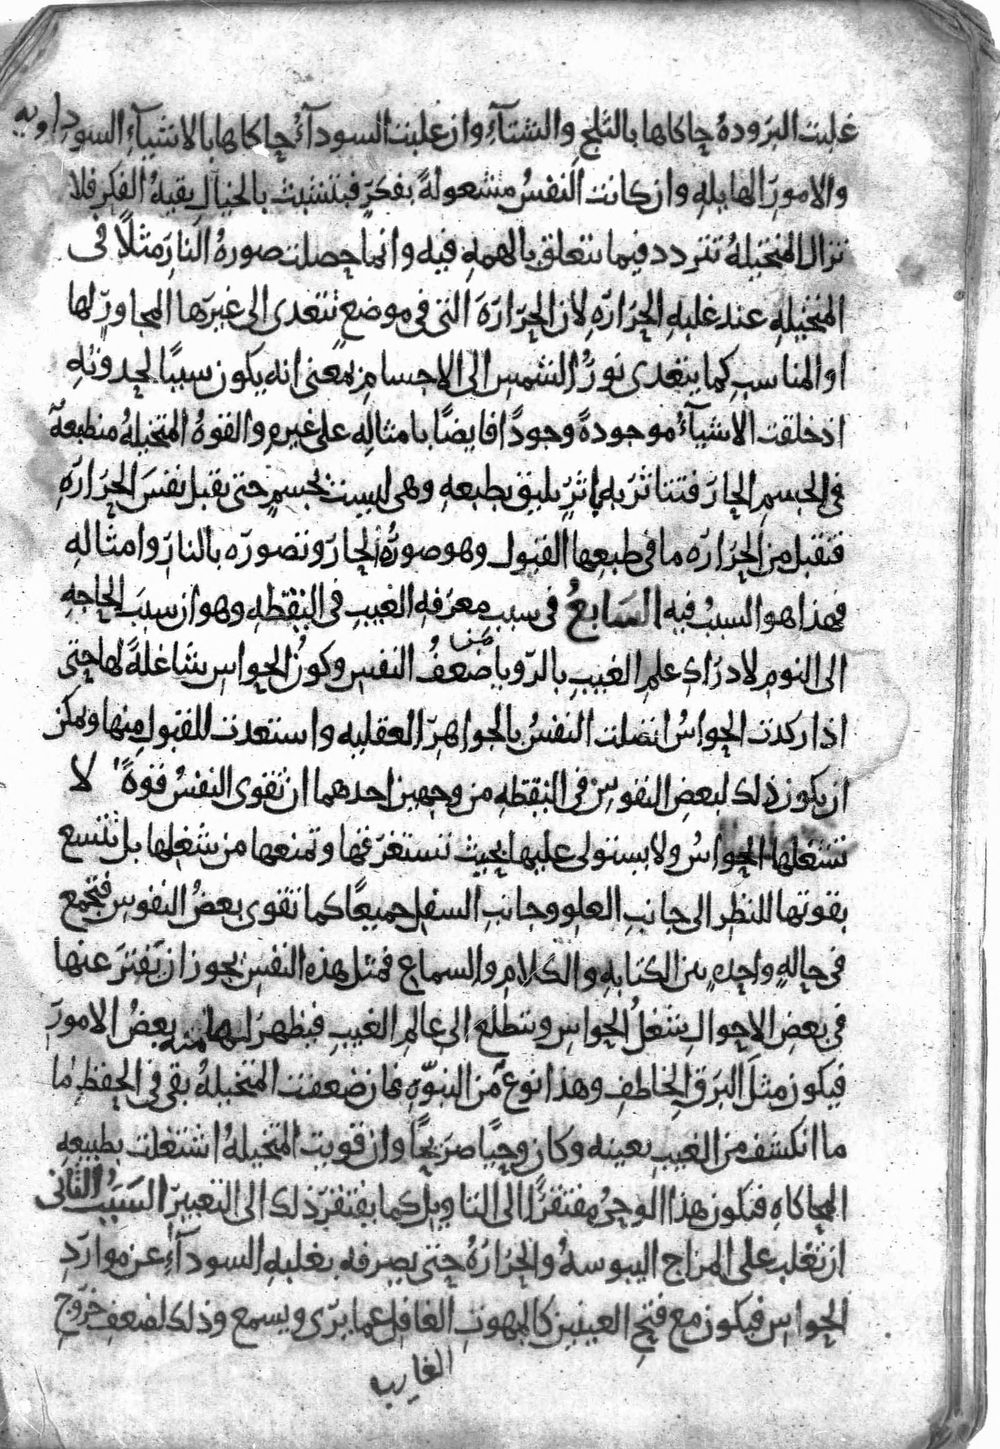 غلبت البروده حاكاها بالثلج والشتآء وان غلبت السودآء حاكاها بالاشيآء السوداويه
والامور الهايله وان كانت النفس مشعولة بفكر فيتشبث بالخيال بقية الفكر فلا
تزال المتخيلة تتردد فيما تتعلق بالهمه فيه وانما حصلت صورة النار مثلا فى
المتخيله عند غلبه الحراره لان الحرارة التى فى موضع تتعدى الى غيرها المجاور لها
او المناسب كما يتعدى نور الشمس الى الاجسام بمعنى انه يكون سببا لحدوثه
اذ خلقت الاشيآء موجودة وجودا فايضا بامثاله على غيره والقوة المتخيلة منطبعة
فى الجسم الحار فتتاثر به باثر يليق بطبعه وهى ليست بجسم حتى يقبل نفس الحراره
فتقبل من الحراره ما فى طبعها القبول وهو صورة الحار وتصوره بالنار وامثاله
فهذا هو السبب فيه السابع فى سبب معرفه الغيب فى اليقظه وهو ان سبب الحاجه
الى النوم لادراك علم الغيب بالرويا ضعف النفس وكون الحواس شاغلة لها حتى
اذا ركدت الحواس اتصلت النفس بالجواهر العقليه واستعدت للقبول منها ويمكن
ان يكون ذلك لبعض النفوس فى اليقظه من وجهين احدهما ان تقوى النفس قوة لا
تشغلها الحواس ولا يستولى عليها بحيث تستغرقها وتمنعها من شغلها بل تتسع
بقوتها للنظر الى جانب العلو وجانب السفل جميعا كما تقوى بعض النفوس فتجمع
فى حاله واحده بين الكتابه والكلام والسماع فمثل هذه النفس يجوز ان تفتر عنها
فى بعض الاحوال شغل الحواس وتتطلع الى عالم الغيب فيظهر لها منه بعض الامور
فيكون مثل البرق الخاطف وهذا نوع من النبوه فان ضعفت المتخيلة بقى فى الحفظ ما
ما انكشف من الغيب بعينه وكان وحيا صريحا وان قويت المتخيلة اشتغلت بطبيعه
المحاكاه فيكون هذا الوحى مفتقرا الى التاويل كما يفتقر ذلك الى التعبير السبب الثانى
ان تغلب على المزاج اليبوسة والحرارة حتى يصرفه بغلبه السودآء عن موارد
الحواس فيكون مع فتح العينين كالمبهوت الغافل عما يرى ويسمع وذلك لضعف خروج